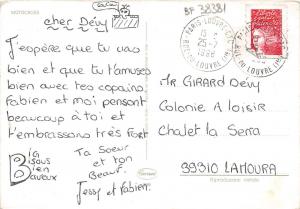 MOTOCROSS
cher Dévy
BF 3838
J'espère que tu vas
bien et que tu t'amuses
bien avec tes copains.
Fabien et moi pensont
beaucoup à toi et
t'embrassons très fort
Big
Bisous
Bien
Baveux
Ta Soeur
et ton
Beauf.
Jessy et Fabien.
PARIS LOUVRE
25-7
1998
LOUVRE
Mr GIRARD Dévy
Colonie A loisir
Chalet la Serra
39310 LAMOURA
Reproduction interdite